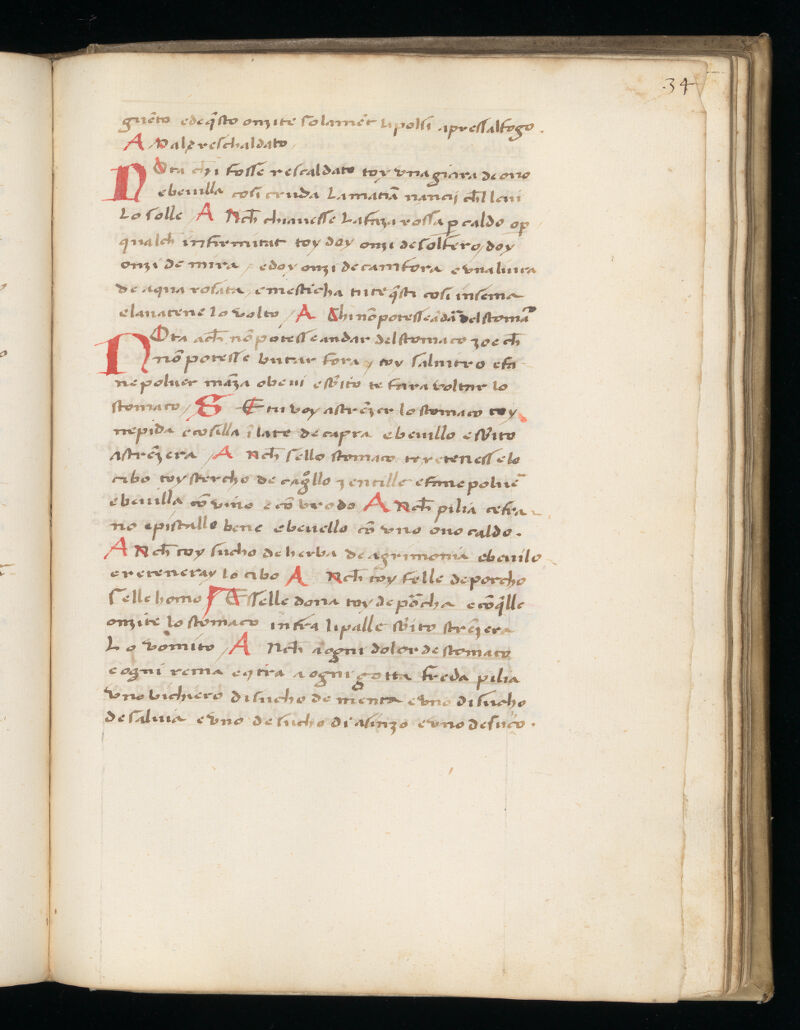 34
guēto ede q̄sto onzite solamēt li polsi apressalfogo.
A N alz reschaldato
NOta chi fosse rescaldato toy una giara de ovo
e bevilla cosi cruda la matiā nancij ch̄ l levi
Lo solle A Nch̄ chi avesse la faza rossa p̄ caldo op̄
qualch̄ infirmitat toy doy onzi de solfero / doy
onzi de mira / e doy onzi de camfora e una livra
de aqua rosata e mesticha tute q̄sti cosi insema
e lavatene lo volto / A Chi nō potesse ādā del stomā
NOta ach̄ nō potesse andar del stomaco zoe ch̄
nō potesse butar fora / toy salnitro e fa
ne polver māza o bevi e sb̄ito te fara voltar lo
stomaco / S E tu voy astrēzer lo stomaco toy
nepida e cosilla ī late de capra e bevillo e sb̄ito
astrēzera / A Nch̄ se llo stomaco no retenesse lo
cibo toy stercho de cagōllo zentille e fane polvē
e bevilla cō vino e cō brodo A Nch̄ pilia cefra
no e pistallo bene e bevello cō uno ovo caldo.
A Nch̄ toy sucho de herba de agrimonia e bevilo
e reteneray lo cibo A Nch̄ toy felle de porcho
se lle homo / E sselle dona toy de pōrcha e cō q̄lle
onzite lo stomaco infra li palle sb̄ito strēzera
Lo vomito / A Nch̄ a ogni dolor de stomaco
e ogni rema e a ogni gotta freda pilia
uno bichiero di sucho de menta e uno di sucho
de salvia e uno de sucho di asinzo e uno de suco.